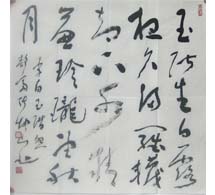 玉階生白露
夜久侵羅襪
却下水精
簾玲瓏望秋
月
李白玉階怨